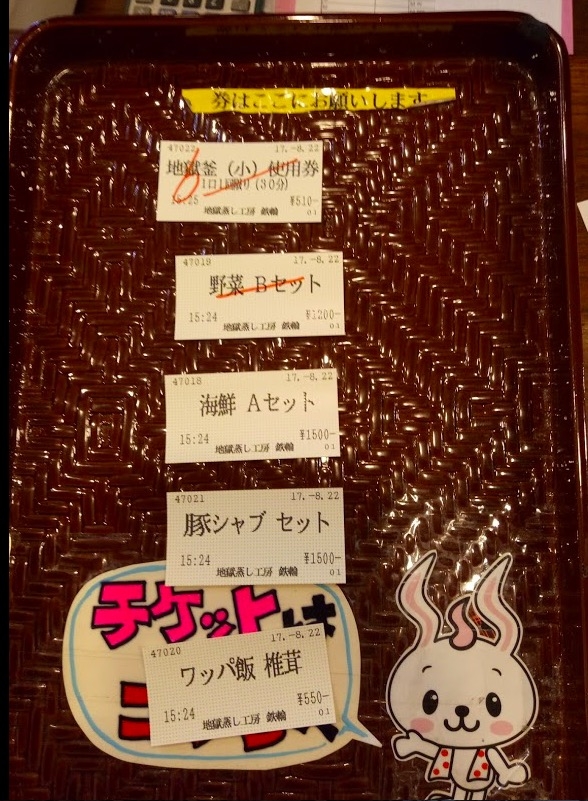 券はここにお願いします
47022 17.-8.22
地獄釜（小）使用券
1口1回限り(30分)
15:25 ¥510-
地獄蒸し工房 鉄輪 01
47019 17.-8.22
野菜 Bセット
15:24 ¥1200-
地獄蒸し工房 鉄輪 01
47018 17.-8.22
海鮮 Aセット
15:24 ¥1500-
地獄蒸し工房 鉄輪 01
47021 17.-8.22
豚シャブ セット
15:24 ¥1500-
地獄蒸し工房 鉄輪 01
チケットは
47020 17.-8.22
ワッパ飯 椎茸
15:24 ¥550-
地獄蒸し工房 鉄輪 01